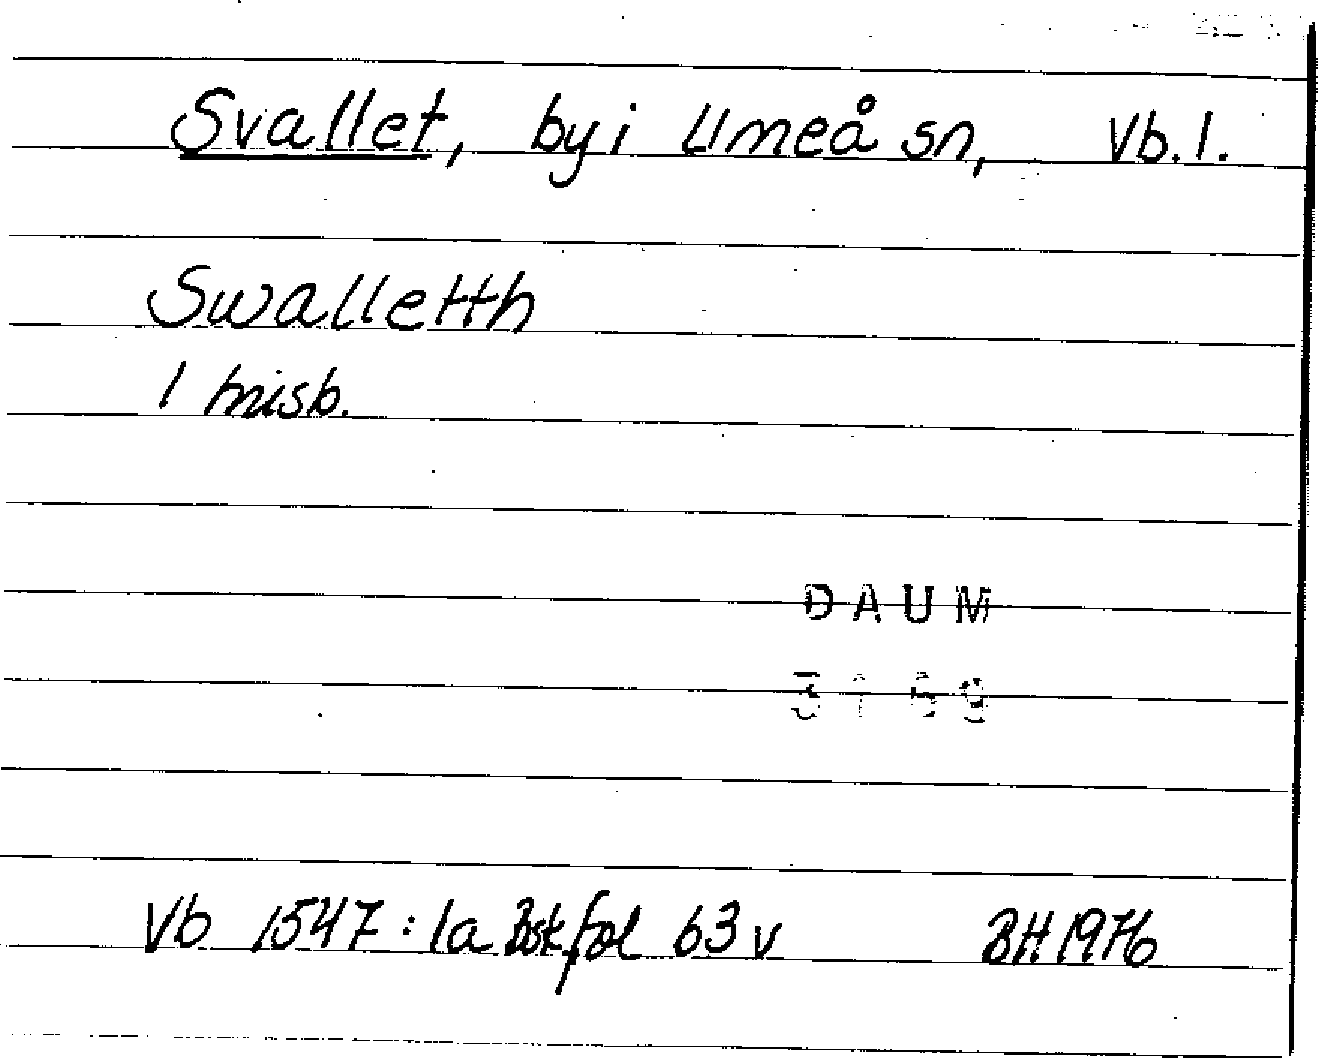 Svallet, by i Umeå sn, Vb.1.
Swalletth
1 hrisb.
DAUM
3169
Vb 1547:1a Bskfol 63v BH 1976